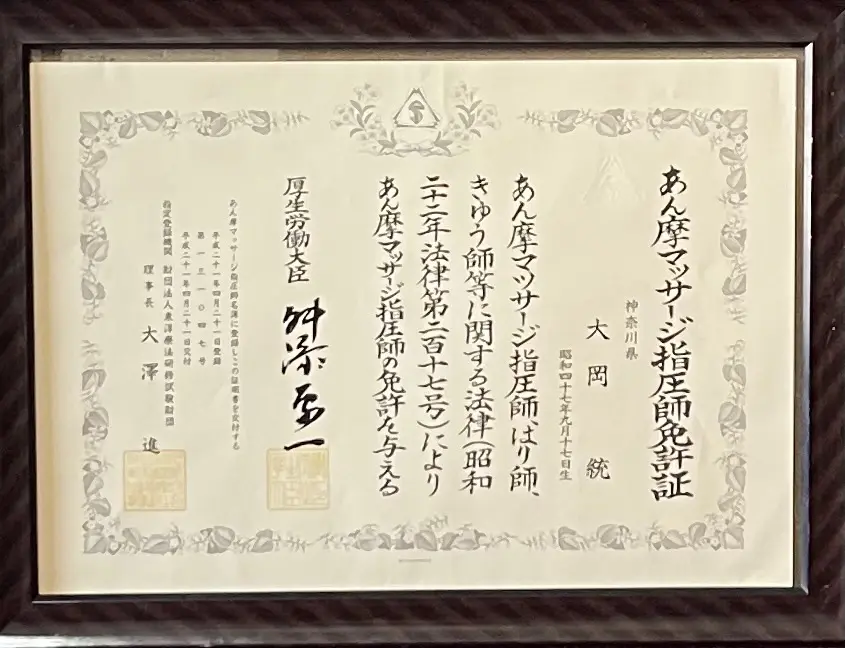 あん摩マッサージ指圧師免許証
神奈川県
大岡 統
昭和四十七年九月十七日生
あん摩マッサージ指圧師、はり師、
きゆう師等に関する法律（昭和
二十二年法律第二百十七号）により
あん摩マッサージ指圧師の免許を与える
厚生労働大臣 舛添要一
あん摩マッサージ指圧師名簿に登録しこの証明書を交付する
平成二十一年四月二十一日登録
第一三一〇四七号
平成二十一年四月二十一日交付
指定登録機関 財団法人東洋療法研修試験財団
理事長 大澤 進